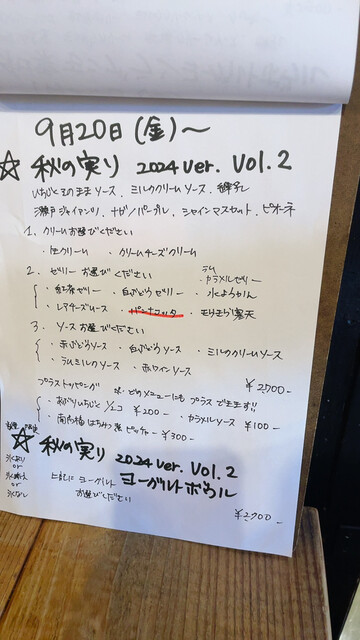 9月20日(金)〜
☆ 秋の実り 2024 ver. Vol.2
いちじくそのままソース、ミルククリームソース、
瀬戸ジャイアンツ、ナガノパープル、シャインマスカット、ピオーネ
1. クリームお選びください
・生クリーム ・クリームチーズクリーム
2. ゼリーお選びください
・紅茶ゼリー ・白ぶどうゼリー ・ラムカラメルゼリー
・レアチーズムース ・パンナコッタ ・水ようかん
3. ソースお選びください
・赤ぶどうソース ・白ぶどうソース ・ミルククリームソース
・ラムミルクソース ・赤ワインソース
¥2,700-
プラストッピング ※どのメニューにもプラスできます!!
・あぶりいちじく 1/2コ ¥200- ・カラメルソース ¥100-
・南高梅はちみつ ピッチャー ¥300-
☆ 秋の実り 2024 ver. Vol.2
ヨーグルトボウル
氷あり
or
or
氷なし
上記に ヨーグルト
お選びください
¥2,700-